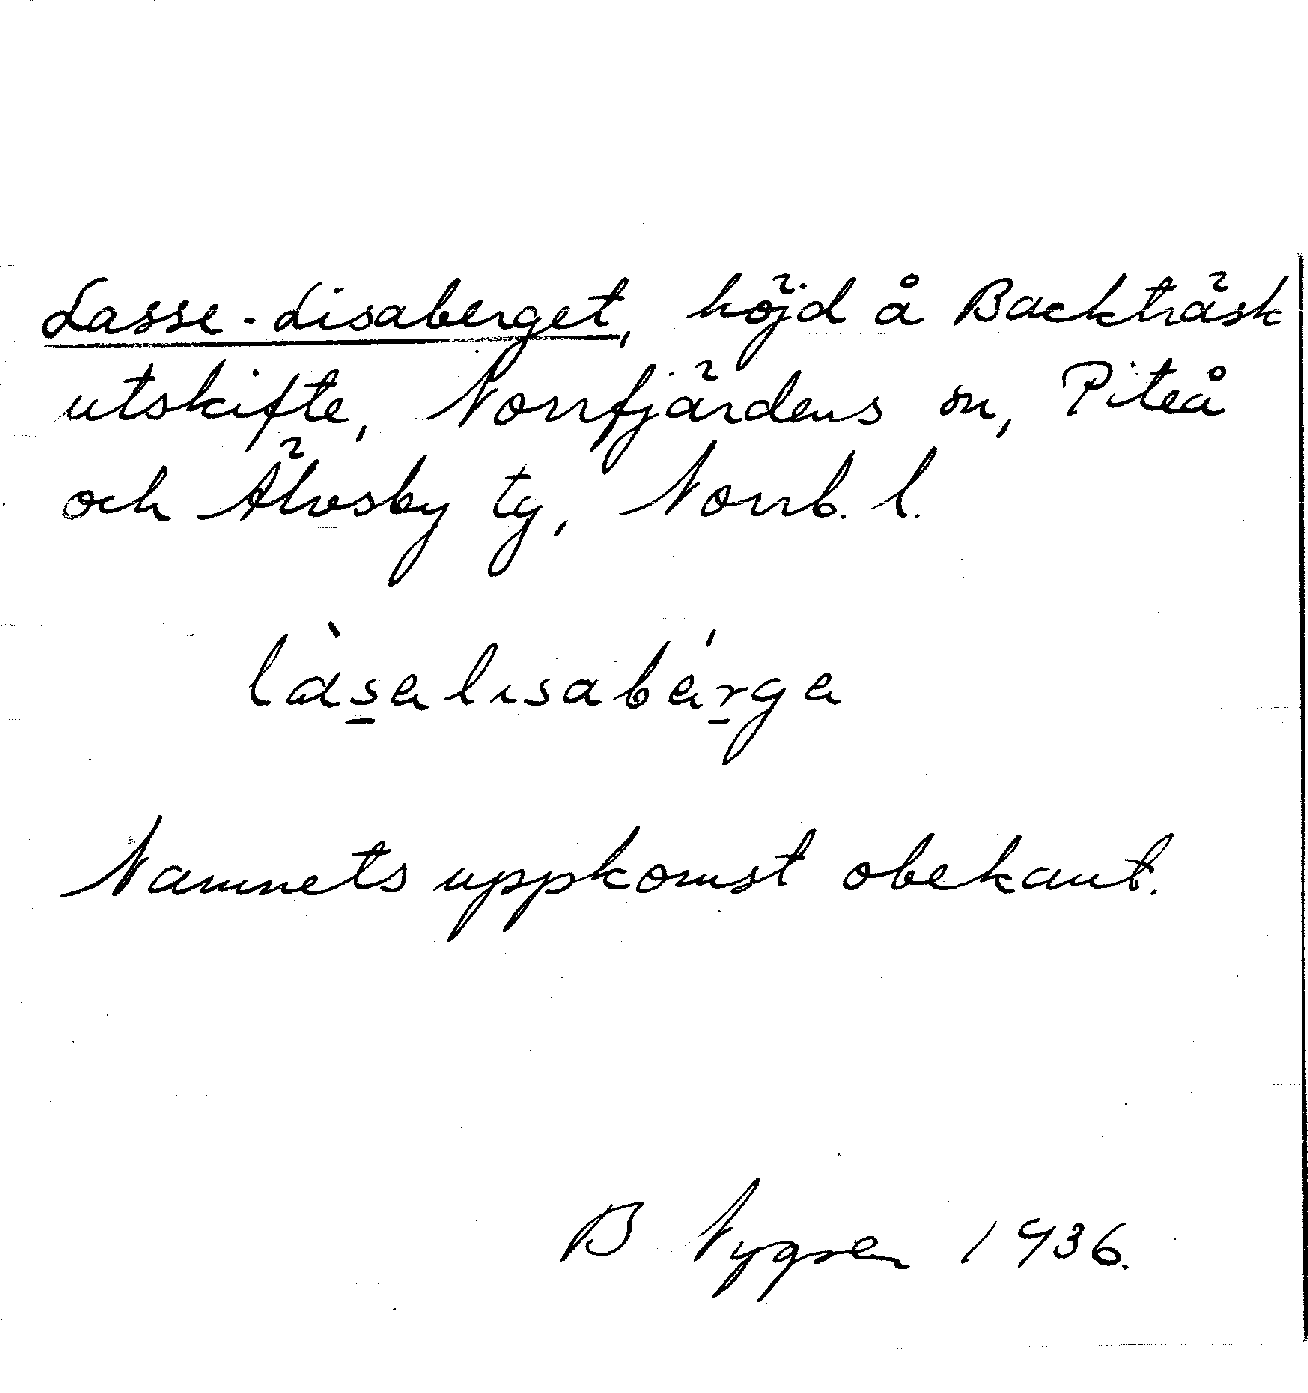 Lasse-Lisaberget, höjd å Backträsk
utskifte, Norrfjärdens sn, Piteå
och Älvsby tg, Norrb. l.
làsalisabérga
Namnets uppkomst obekant.
B Nygren 1936.